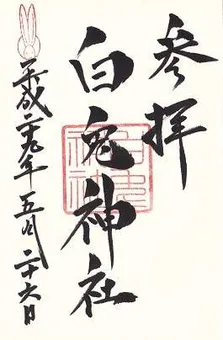 参拝
白兎神社
平成二十九年五月二十六日